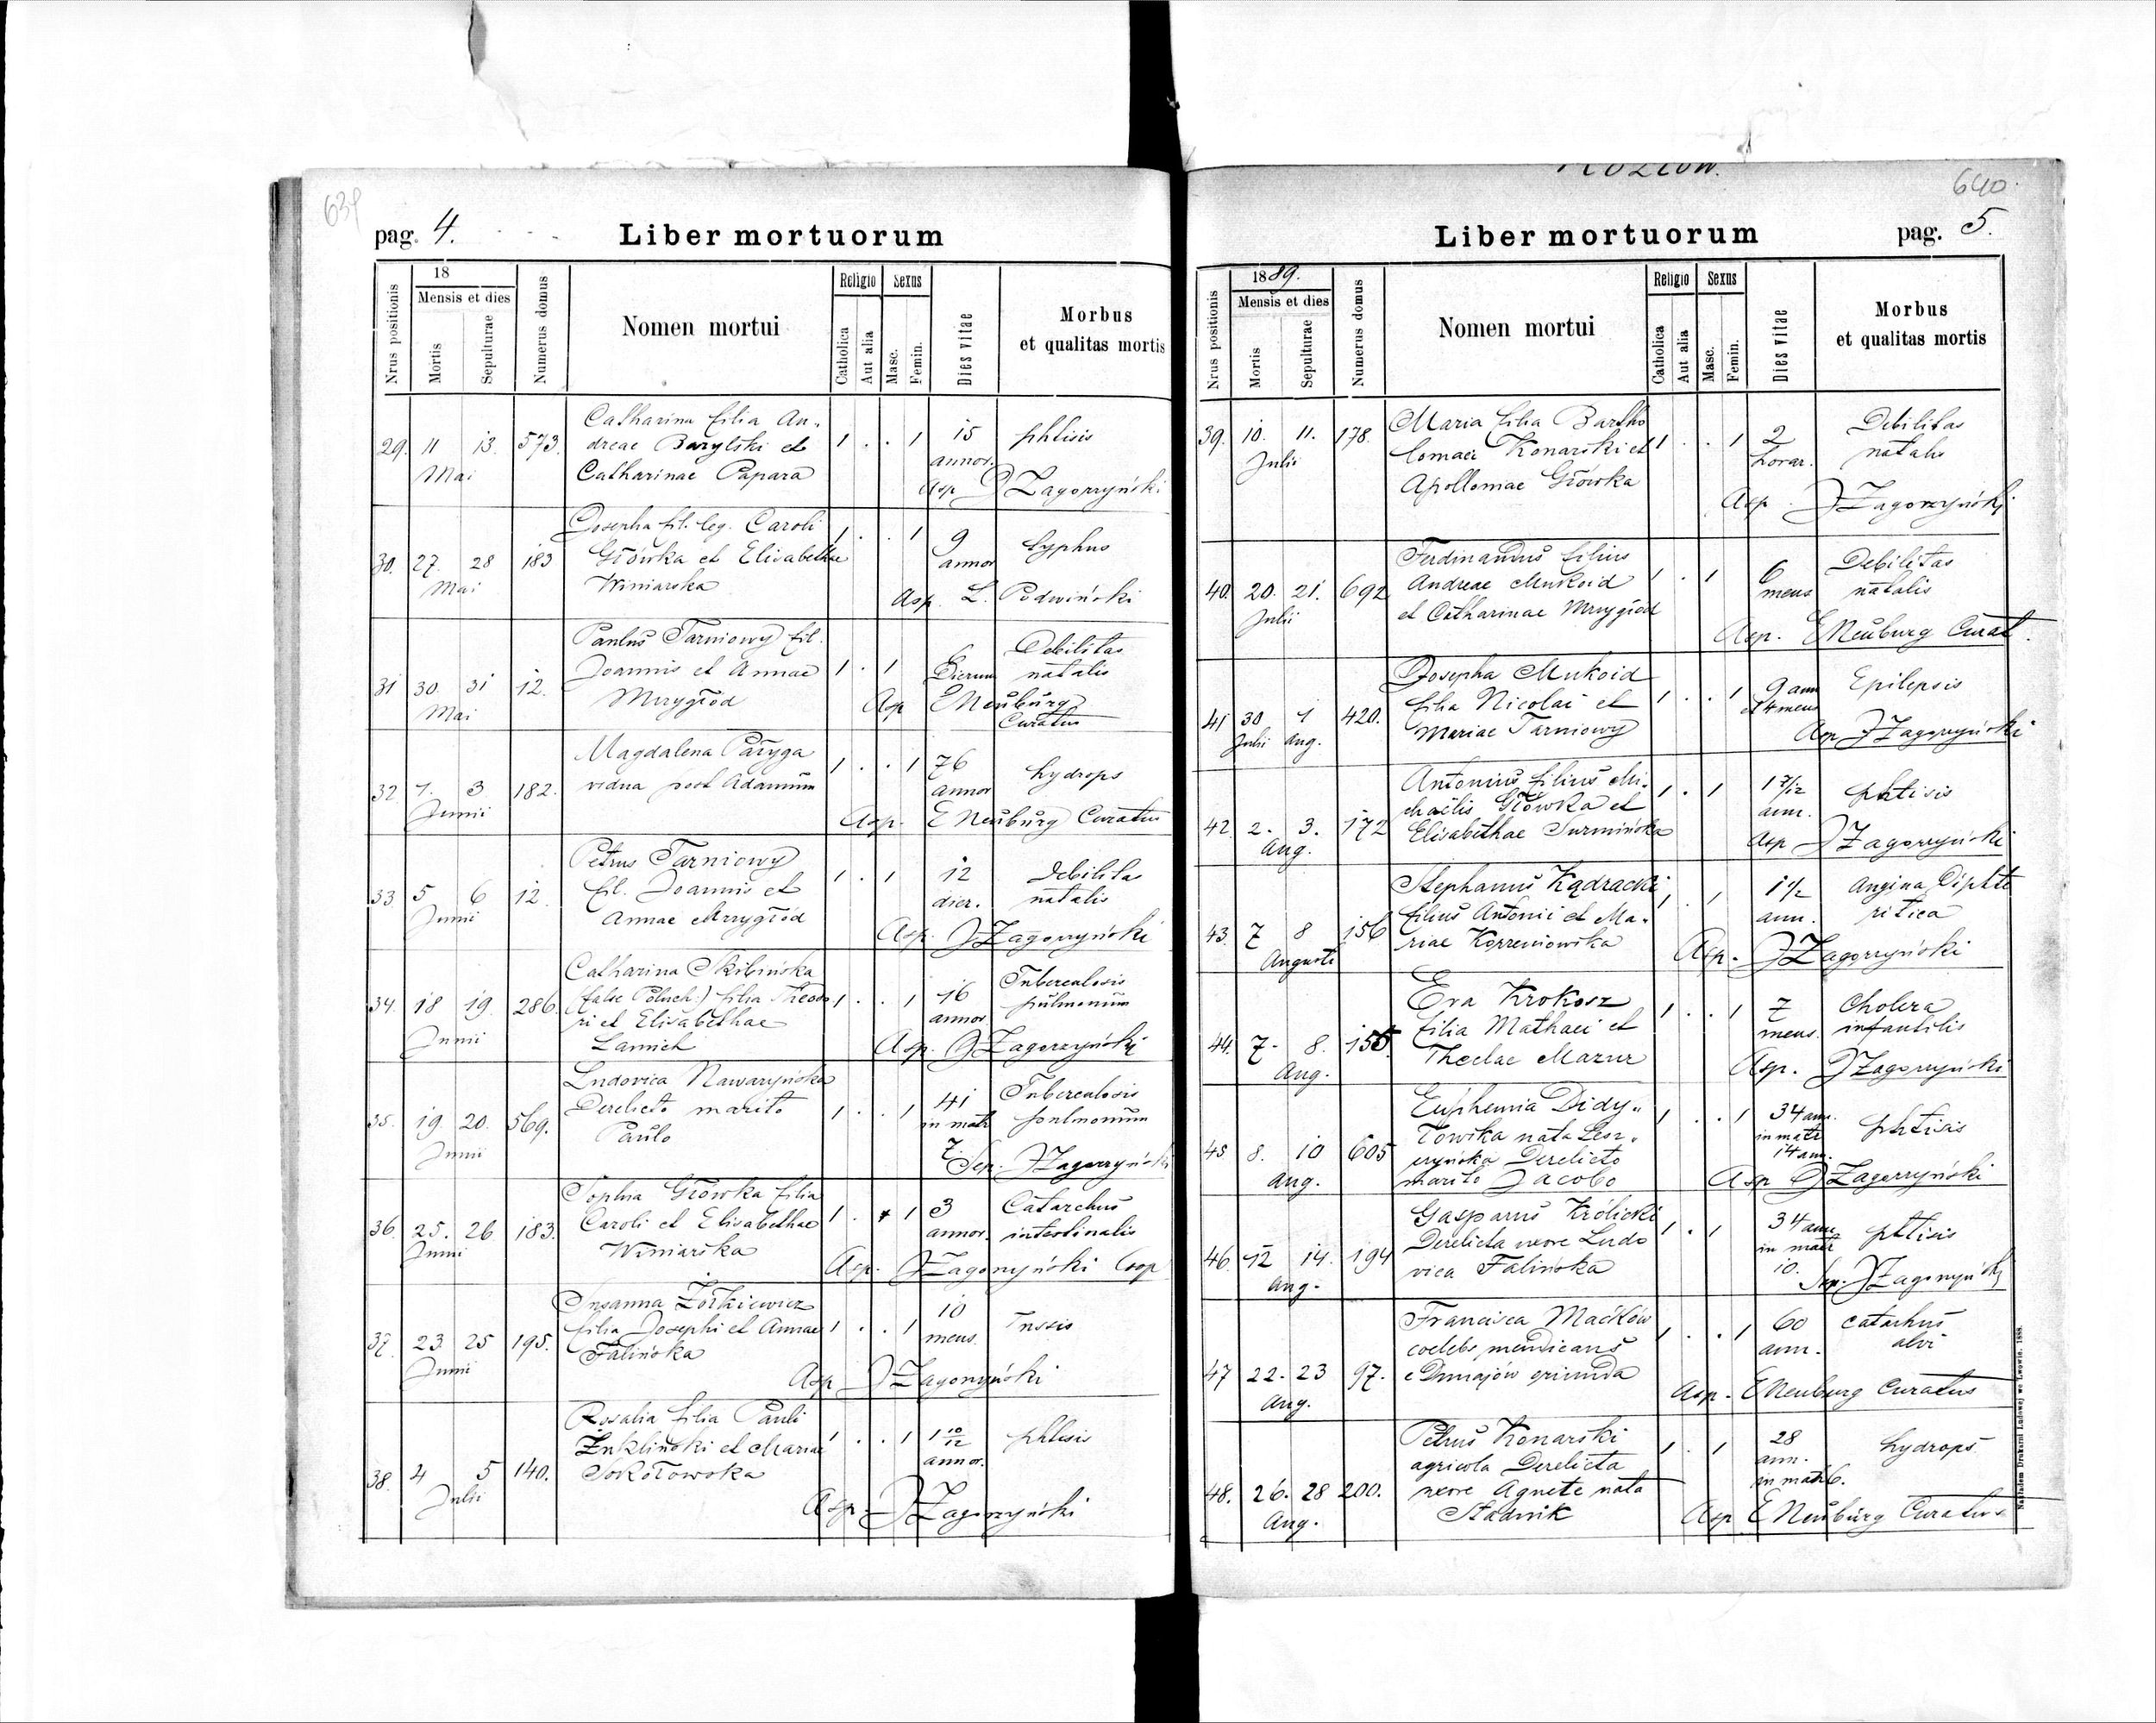 639
pag. 4.
Liber mortuorum
Nrus positionis
18
Mensis et dies
Mortis
Sepulturae
Numerus domus
Nomen mortui
Religio
Catholica
Aut alia
Sexus
Masc.
Femin.
Dies vitae
Morbus
et qualitas mortis
Catharina filia An-
29. 11 13. 573. dreae Barylski et 1 . . 1 15 phtisis
Mai Catharinae Papara annor.
Asp J Zagorzyński
Josepha fil. leg. Caroli
30. 27. 28 183 Głowka et Elisabethae 1 . . 1 9 typhus
Mai Winiarska annor
Asp. L. Podwiński
Paulus Tarniowy fil. Debilitas
31 30. 31 12. Joannis et Annae 1 . 1 6 Dierum natalis
Mai Mrzygłod
Asp E Neuburg
Curatus
Magdalena Paryga
32 1. 3 182. vidua post Adamum 1 . . 1 76 hydrops
Junii annor
Asp. E Neuburg Curatus
Petrus Tarniowy
33 5 6 12. fil. Joannis et 1 . 1 12 debilitas
Junii Annae Mrzygłód dier. natalis
Asp. J Zagorzyński
Catharina Skibińska Tuberculosis
34. 18 19. 286. (false Poluch.) filia Theodo 1 . . 1 16 pulmonum
Junii ri et Elisabethae annor
Lanich
Asp. J Zagorzyński
Ludovica Nawaryńska Tuberculosis
35. 19 20. 569. Derelicto marito 1 . . 1 41 in matr pulmonum
Junii Paulo 7.
Sep. J Zagorzyński
Sophia Głowka filia Catarchus
36. 25. 26 183. Caroli et Elisabethae 1 . . 1 3 intestinalis
Junii Winiarska annor.
Asp. J Zagorzyński Coop
Susanna Żołkiewicz 10
37. 23 25 195. filia Josephi et Annae 1 . . 1 meus. Tussis
Junii Falińska
Asp J Zagorzyński
Rosalia filia Pauli
38. 4 5 140. Żukliński et Mariae 1 . . 1 1 10/12 phtisis
Julii Sokołowska annor.
Asp. J Zagorzyński
640.
Liber mortuorum
pag. 5.
Nrus positionis
1889.
Mensis et dies
Mortis
Sepulturae
Numerus domus
Nomen mortui
Religio
Catholica
Aut alia
Sexus
Masc.
Femin.
Dies vitae
Morbus
et qualitas mortis
Maria filia Bartho Debilitas
39. 10. 11. 178. lomaei Konarski et 1 . . 1 2 natalis
Julii Apolloniae Główka horar.
Asp J Zagorzyński
Ferdinandus filius Debilitas
40. 20. 21. 692 Andreae Mukoid 1 . 1 6 natalis
Julii et Catharinae Mrzygłod mens
Asp. E Neuburg Curat.
Josepha Mukoid
41 30 1 420. filia Nicolai et 1 . . 1 9 ann Epilepsis
Julii Aug. Mariae Tarniowy et 4 mens
Asp J Zagorzyński
Antonius filius Mi-
42. 2. 3. 172 chaëlis Głowka et 1 . 1 1 7/12 phtisis
Aug. Elisabethae Surmińska ann.
Asp J Zagorzyński
Stephanus Kądracki Angina Diphte
43. 7 8 156 filius Antonii et Ma- 1 . 1 1 1/2 ritica
Augusti riae Korzeniowska ann.
Asp. J Zagorzyński
Eva Krokosz Cholera
44. 7. 8. 155. filia Mathaei et 1 . . 1 7 infantilis
Aug. Theclae Mazur mens.
Asp. J Zagorzyński
Euphemia Didy-
45 8. 10 605 łowska nata Lesz- 1 . . 1 34 ann. phtisis
Aug. czyńska Derelicto in matr
marito Jacobo 14 ann.
Asp J Zagorzyński
Gasparus Królicki
46. 12 14. 194 Derelicta uxore Ludo 1 . 1 34 ann phtisis
Aug. vica Falińska in matr
10. Sep. J Zagorzyński
Francisca Maćków catarhus
47 22. 23 97. coelebs mendicans 1 . . 1 60 alvi
Aug. e Dunajów oriunda ann.
Asp. E Neuburg Curatus
Petrus Konarski 28 hydrops
48. 26. 28 200. agricola Derelicta 1 . 1 ann.
Aug. uxore Agnete nata in matr 6.
Stadnik
Asp E Neuburg Curatus
Nakładem Drukarni Ludowej we Lwowie. 1888.